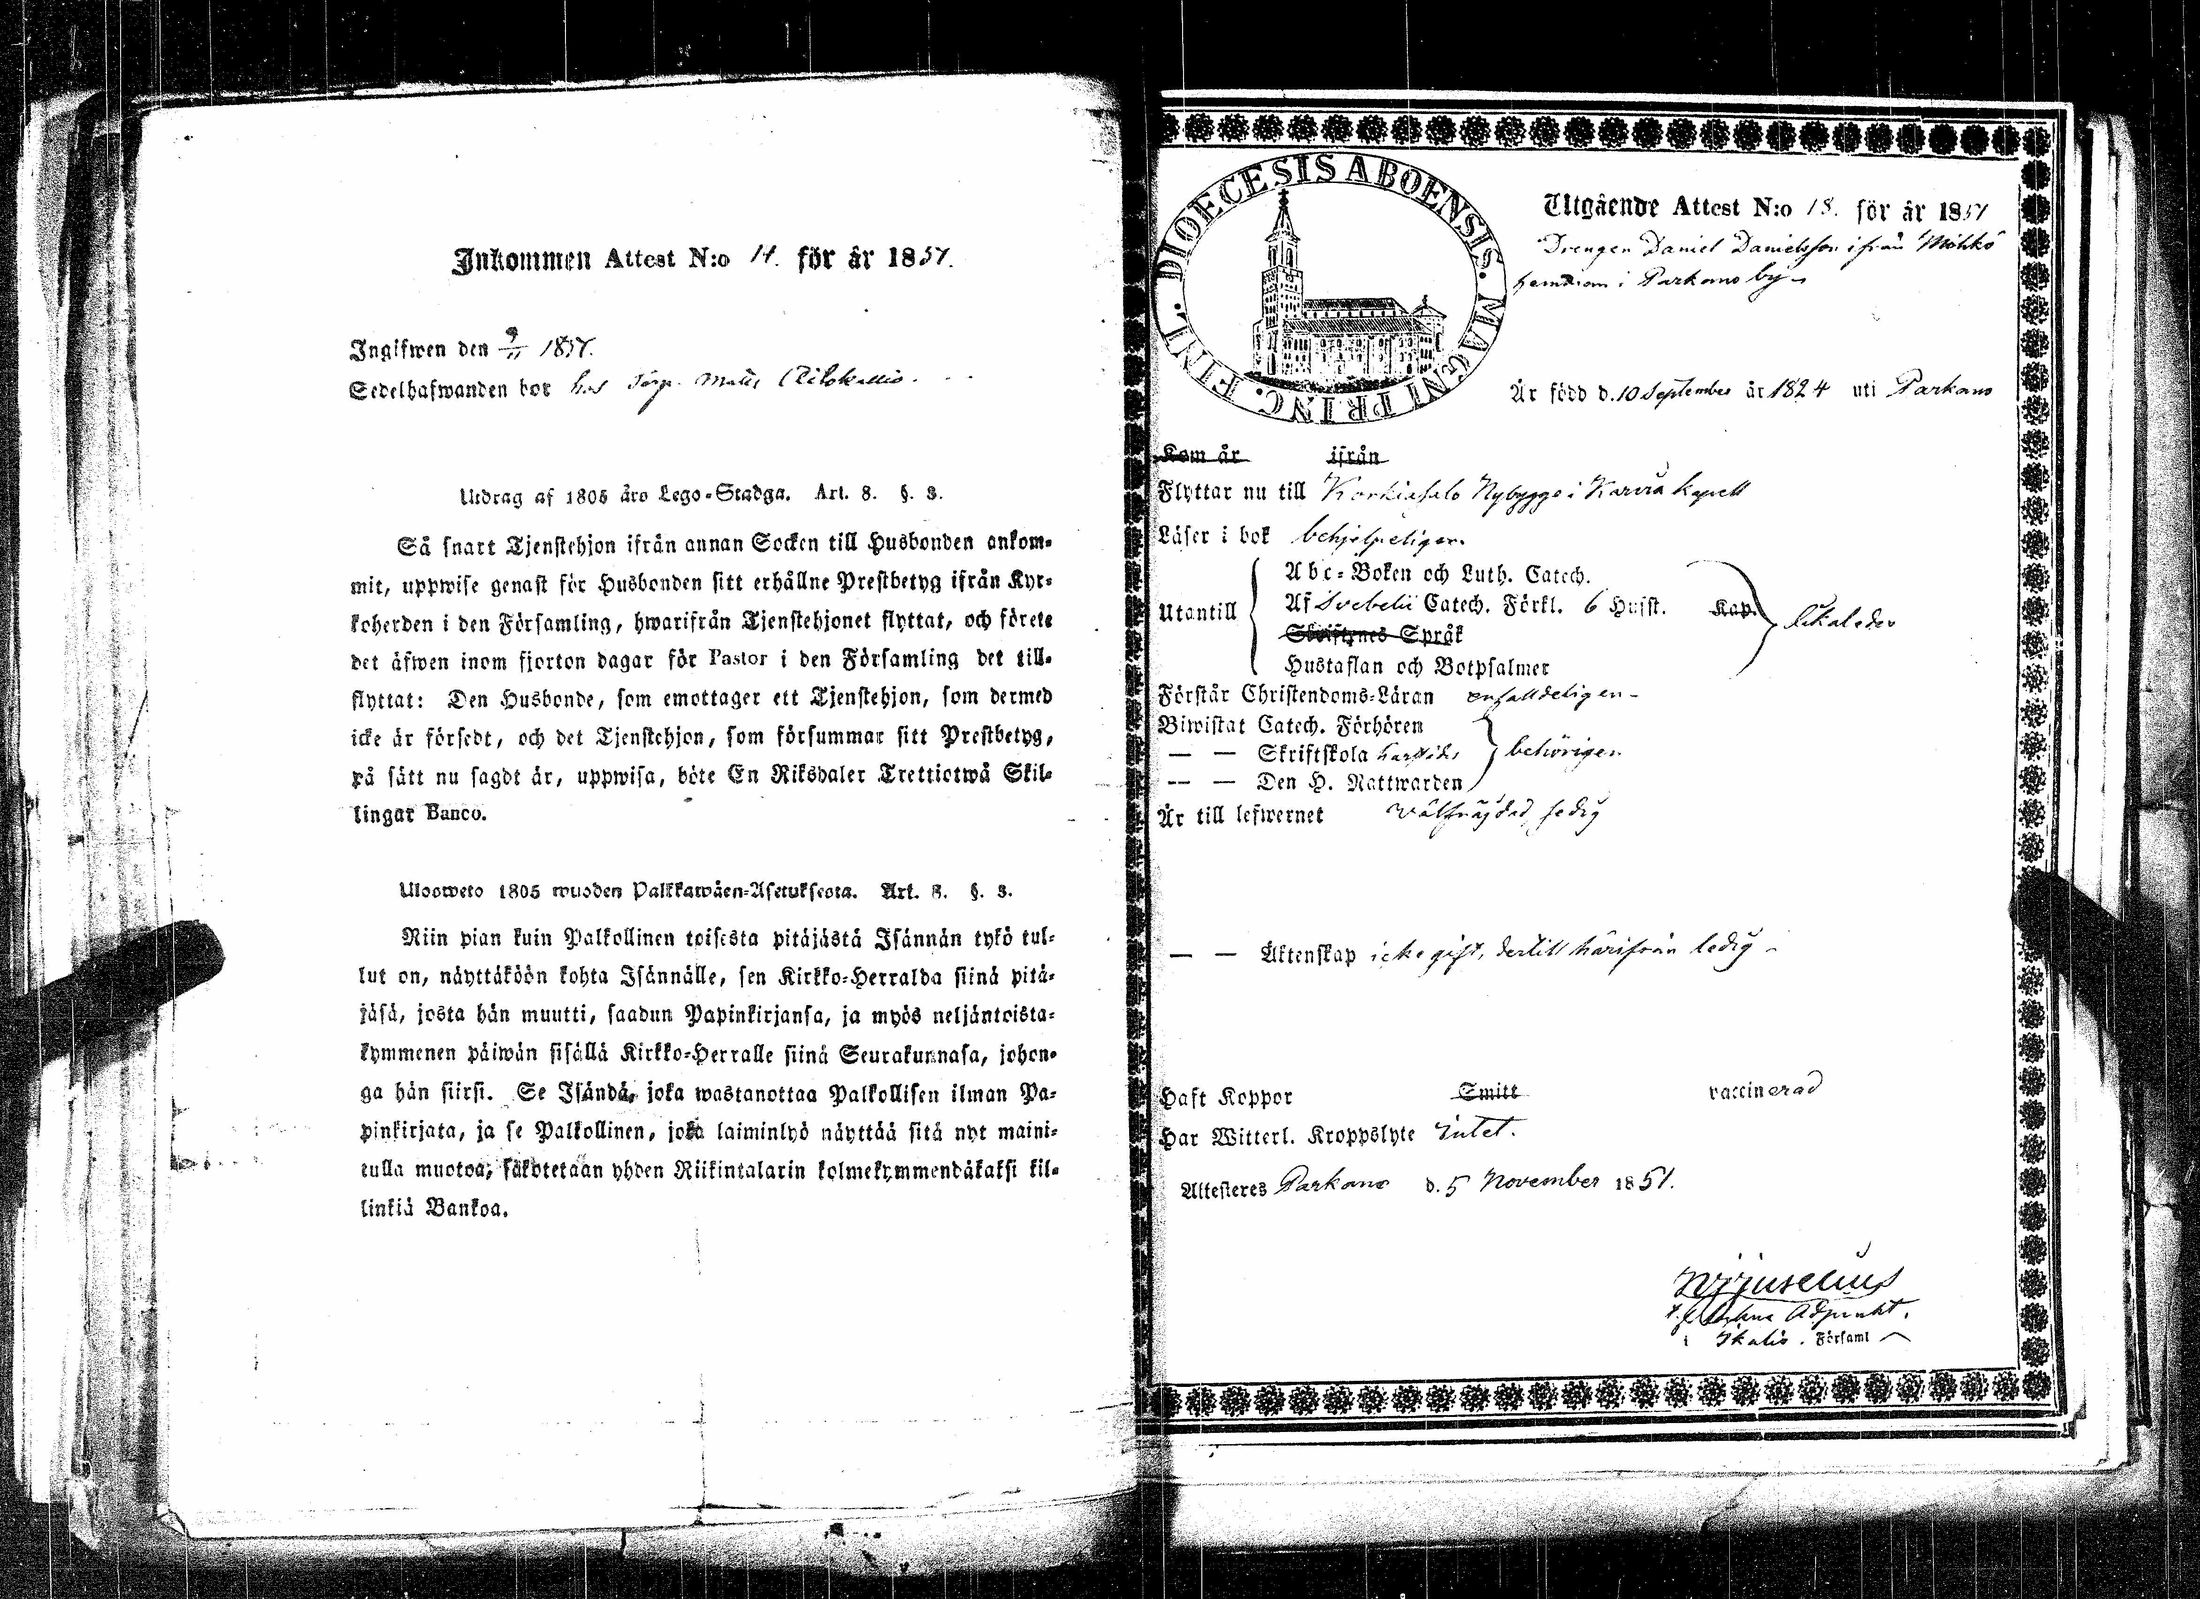 Inkommen Attest N:o 14. för år 1851.
Ingifwen den 9/11 1851.
Sedelhafwanden bor hos Torp. Matts
Utdrag af 1805 års Lego-Stadga. Art. 8. §. 3.
Så snart Tjenstehjon ifrån annan Socken till Husbonden ankom-
mit, uppwise genast för Husbonden sitt erhållne Prestbetyg ifrån Kyr-
koherden i den Församling, hwarifrån Tjenstehjonet flyttat, och förete
det äfwen inom fjorton dagar för Pastor i den Församling det till-
flyttat: Den Husbonde, som emottager ett Tjenstehjon, som dermed
icke är försedt, och det Tjenstehjon, som försummar sitt Prestbetyg,
på sätt nu sagdt är, uppwisa, böte En Riksdaler Trettiotwå Skil-
lingar Banco.
Ulosweto 1805 wuoden Palkkawäen-Asetuksesta. Art. 8. §. 3.
Niin pian kuin Palkollinen toisesta pitäjästä Isännän tykö tul-
lut on, näyttäköön kohta Isännälle, sen Kirkko-Herralda siinä pitä-
jäsä, josta hän muutti, saadun Papinkirjansa, ja myös neljäntoista-
kymmenen päiwän sisällä Kirkko-Herralle siinä Seurakunnasa, johon-
ga hän siirsi. Se Isändä, joka wastanottaa Palkollisen ilman Pa-
pinkirjata, ja se Palkollinen, joka laiminlyö näyttää sitä nyt maini-
tulla muotoa, sakotetaan yhden Riikintalarin kolmekymmendäkaksi kil-
linkiä Bankoa.
DIOECESIS ABOENSIS. MAGNI PRINC. FINL.
Utgående Attest N:o 18. för år 1851
Drengen Daniel Danielsson ifrån Möhkö
hemman i Parkano by
Är född d. 10 September år 1824 uti Parkano
Kom år ifrån
Flyttar nu till Korkiasalo Nybygge i Karvia kapell
Läser i bok behjelpeligen.
Utantill
Abc-Boken och Luth. Catech.
Af Svebelii Catech. Förkl. 6 Hufst. Kap.
Skriftenes Språk
Hustaflan och Botpsalmer
likaledes
Förstår Christendoms-Läran enfalldeligen
Biwistat Catech. Förhören
— — Skriftskola
— — Den H. Nattwarden
behörigen
Är till lefwernet välfräjdad, sedig
— — Äktenskap icke gift, dertill härifrån ledig
Haft Koppor Smitt vaccinerad
Har Witterl. Kroppslyte intet.
Attesteres Parkano d. 5 November 1851.
Juselius
Adjunkt.
i Ikalis Församl